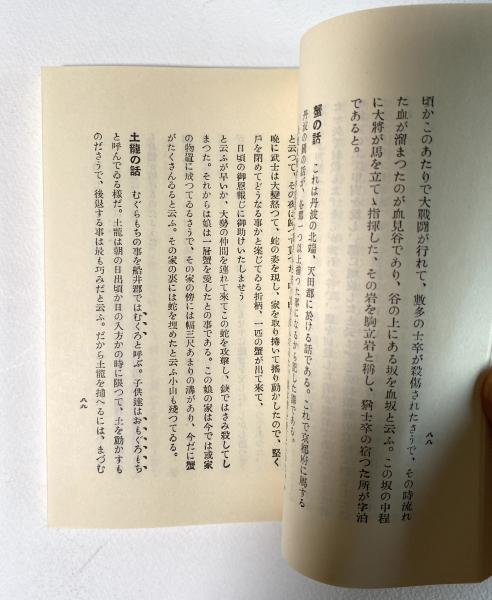 頃かこのあたりで大戰鬪が行れて、數多の士卒が殺傷されたさうで、その時流れ
た血が溜まつたのが血見谷であり、谷の上にある坂を血坂と云ふ。この坂の中程
に大將が馬を立てゝ指揮した、その岩を駒立岩と稱し、猶士卒の宿つた所が字泊
であると。
蟹の話 これは丹波の北端、天田郡に於ける話である。これで京都府に屬する
丹波の國の話が、各郡一つ以上揃つた事になるから
八八
と云つて、その夜は
晩に武士は大變怒つて、蛇の姿を現し、家を取り捲いて搖り動かしたので、堅く
戸を閉めてどうなる事かと案じてゐる折柄、一匹の蟹が出て來て、
日頃の御恩報じに御助けいたしませう
と云ふが早いか、大勢の仲間を連れて來てこの蛇を攻擊し、鋏ではさみ殺してし
まつた。それからは娘は一層蟹を愛したとの事である。この娘の家は今では或家
の物置に成つてゐるさうで、その家の傍には幅三尺あまりの溝があり、今だに蟹
がたくさんゐると云ふ。その家の裏には蛇を埋めたと云ふ小山も殘つてゐる。
土龍の話 むぐらもちの事を船井郡ではむくろと呼ぶ。子供達はおもぐろもち
と呼んでゐる樣だ。土龍は朝の日出頃か日の入方かの時に限つて、土を動かすも
のださうで、後退する事は最も巧みだと云ふ。だから土龍を捕へるには、まづむ
八九